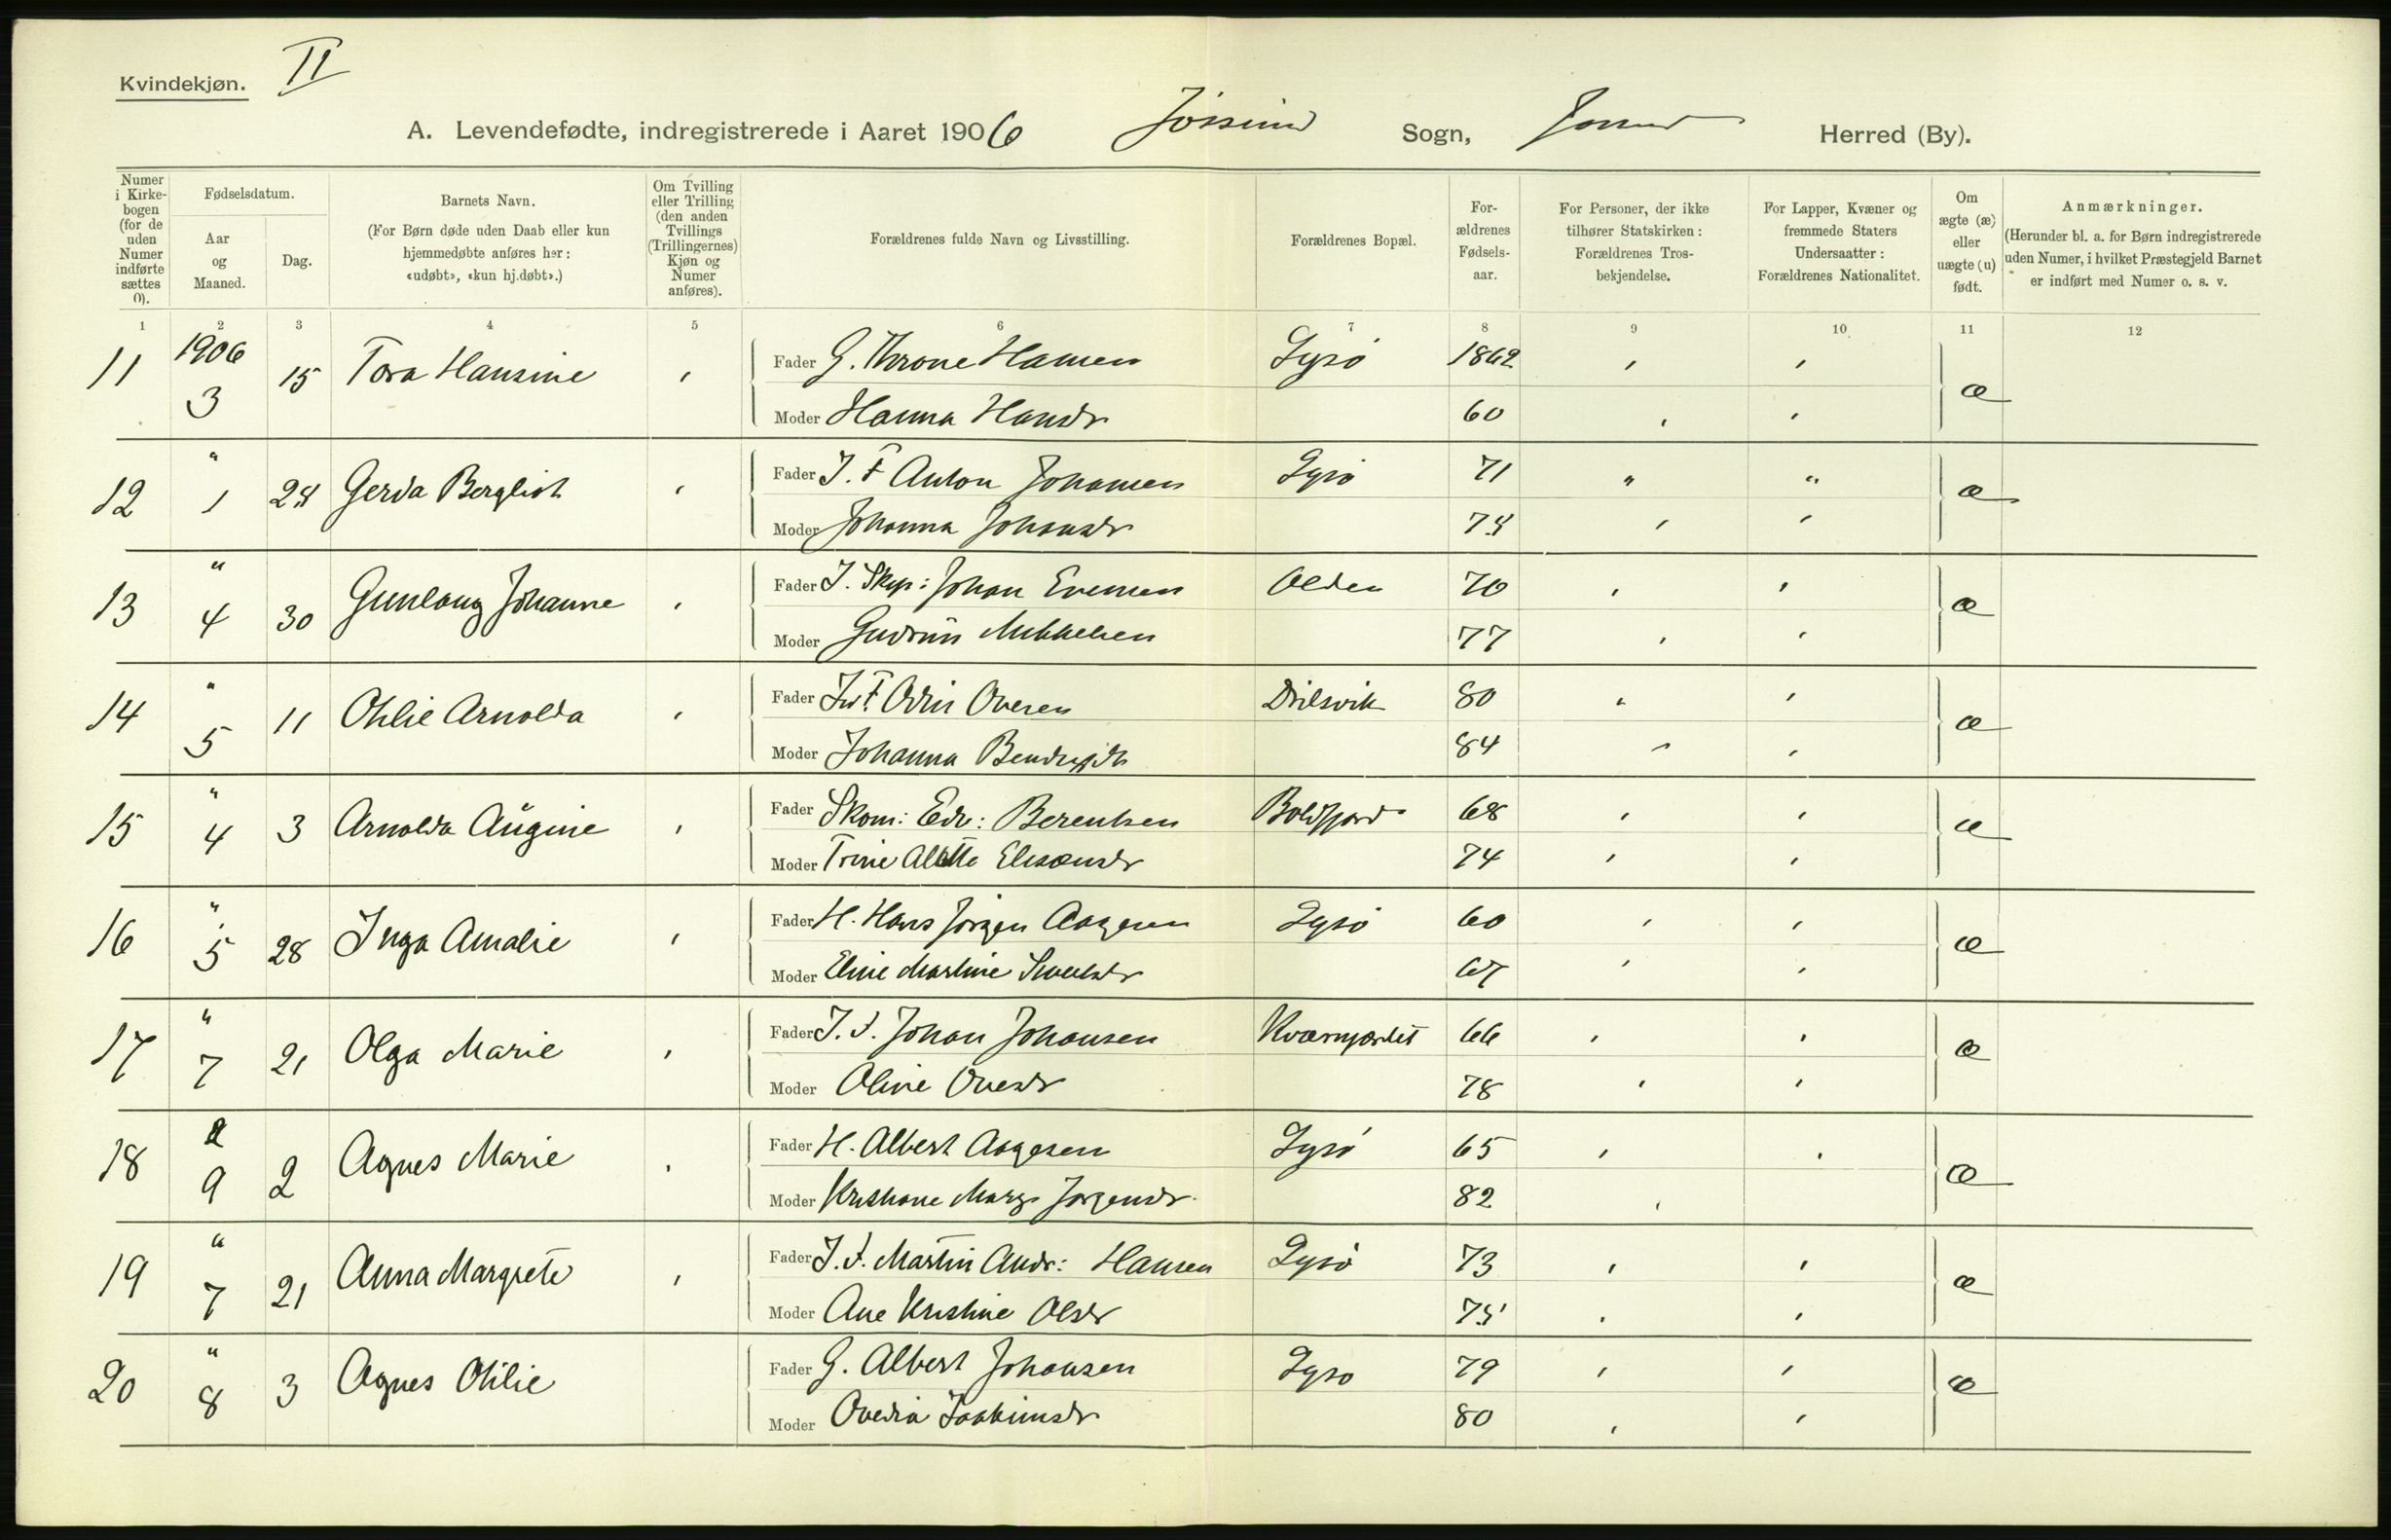 Kvindekjøn. II
A. Levendefødte, indregistrerede i Aaret 1906 Jøssund Sogn, Herred (By).
Numer i Kirkebogen (for de uden Numer indførte sættes 0).
Fødselsdatum.
Aar og Maaned.
Dag.
Barnets Navn.
(For Børn døde uden Daab eller kun hjemmedøbte anføres her: «udøbt», «kun hj.døbt».)
Om Tvilling eller Trilling (den anden Tvillings (Trillingernes) Kjøn og Numer anføres).
Forældrenes fulde Navn og Livsstilling.
Forældrenes Bopæl.
Forældrenes Fødselsaar.
For Personer, der ikke tilhører Statskirken: Forældrenes Trosbekjendelse.
For Lapper, Kvæner og fremmede Staters Undersaatter: Forældrenes Nationalitet.
Om ægte (æ) eller uægte (u) født.
Anmærkninger.
(Herunder bl. a. for Børn indregistrerede uden Numer, i hvilket Præstegjeld Barnet er indført med Numer o. s. v.
1 2 3 4 5 6 7 8 9 10 11 12
11 1906 3 15 Tora Hansine Fader G. Throne Hansen Lysø 1862 æ
Moder Hanna Hansdr 60
12 " 1 Gerda Bergliot Fader J. F Anton Johansen Lysø 71 " " æ
Moder Johanna Johansdr 75
13 " 4 30 Gunlaug Johanne Fader J. Skp: Johan Evensen Olden 70 æ
Moder Gudrun Mikkelsen 77
14 " 5 11 Othlie Arnolda Fader Odin Ovesen 80 æ
Moder Johanna 84
15 " 4 3 Arnolda Augine Fader Skom: Edv: Berentsen 68 æ
Moder Trine Alette 74
16 " 5 28 Inga Amalie Fader H. Hans Jørgen Aagesen Lysø 60 æ
Moder Eline Martine 67
17 " 7 21 Olga Marie Fader J. F. Johan Johansen 66 æ
Moder Oline Ovesdr 78
18 9 2 Agnes Marie Fader H. Albert Aagesen Lysø 65 æ
Moder Kristiane Marg. Jørgensdr 82
19 " 7 21 Anna Margrete Fader J. F. Martin Andr: Hansen Lysø 73 æ
Moder Ane Kristine Olsdr 75
20 " 8 3 Agnes Otilie Fader G. Albert Johansen Lysø 79 æ
Moder Ovedia Joakimsdr 80